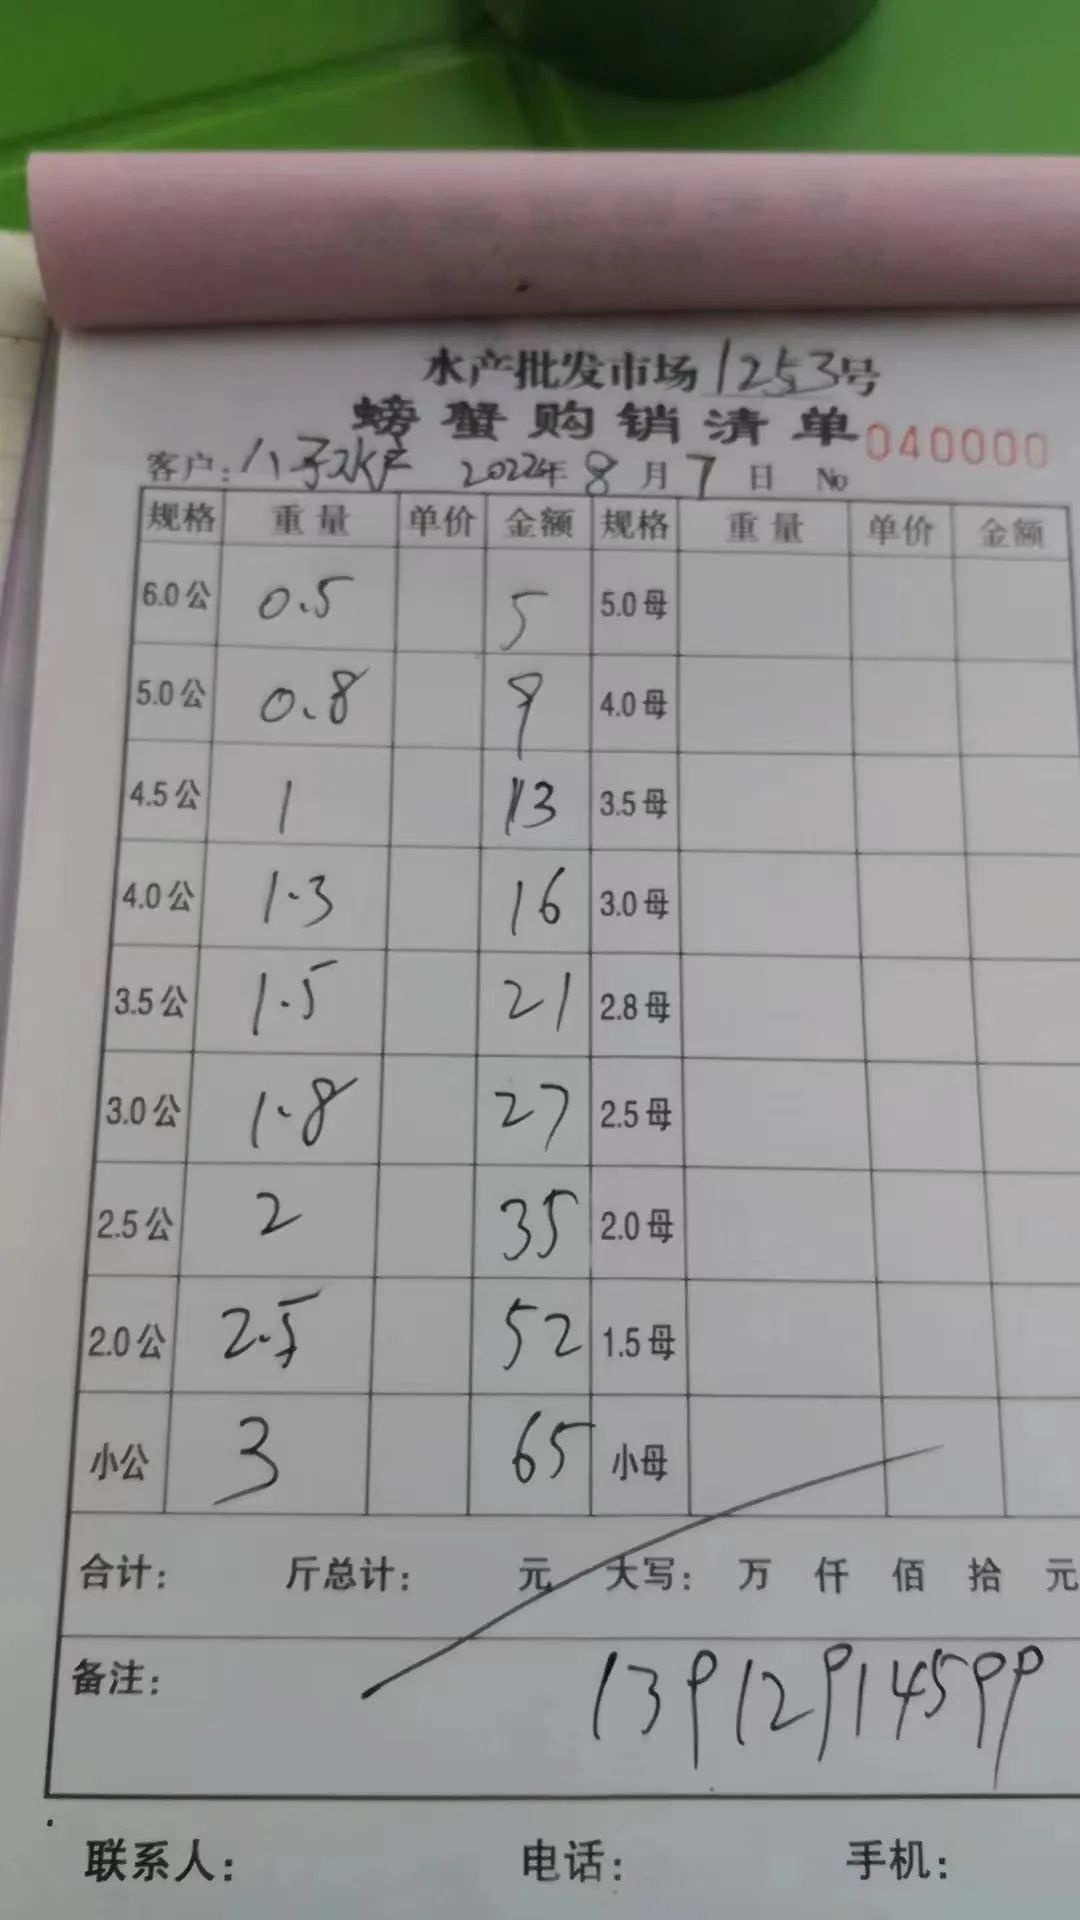 水产批发市场1253号
螃蟹购销清单 040000
客户：八子水产 2022年8月7日 No
规格 重量 单价 金额 规格 重量 单价 金额
6.0公 0.5 5 5.0母
5.0公 0.8 9 4.0母
4.5公 1 13 3.5母
4.0公 1.3 16 3.0母
3.5公 1.5 21 2.8母
3.0公 1.8 27 2.5母
2.5公 2 35 2.0母
2.0公 2.5 52 1.5母
小公 3 65 小母
合计： 斤总计： 元 大写： 万 仟 佰 拾 元
备注： 13912914599
联系人： 电话： 手机：